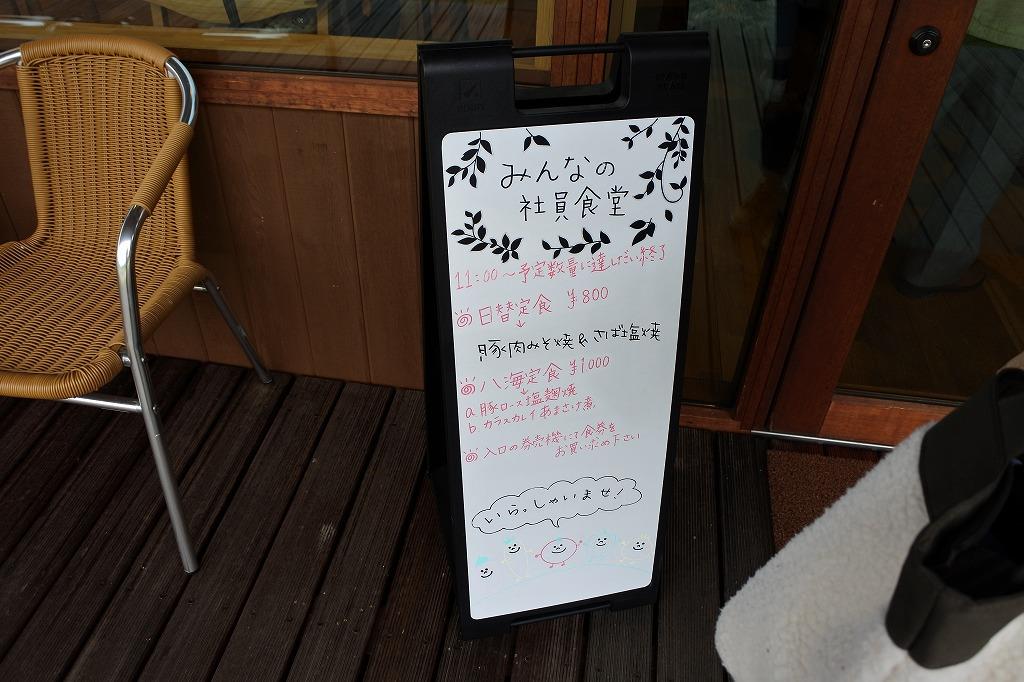 みんなの
社員食堂
11:00～予定数量に達しだい終了
日替定食 ¥800
↓
豚肉みそ焼&さば塩焼
八海定食 ¥1000
↓
a 豚ロース塩麹焼
b カラスカレイあまさけ煮
入口の券売機にて食券を
お買い求め下さい
いらっしゃいませ!